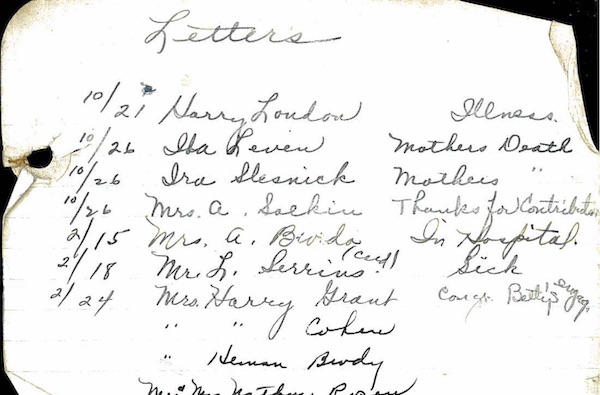 Letters
10/21 Harry London Illness.
10/26 Iba Leven Mothers Death
10/26 Ira Slesnick Mothers "
10/26 Mrs. A. Sackin Thanks for Contribution
2/15 Mrs. A. Brodo In Hospital.
2/18 Mr. L. Serrins (Card) Sick
2/24 Mrs. Harry Grant Congr. Betty's engag.
" " Cohen
" Heman Brody
Mr & Mrs Nathan Rosen